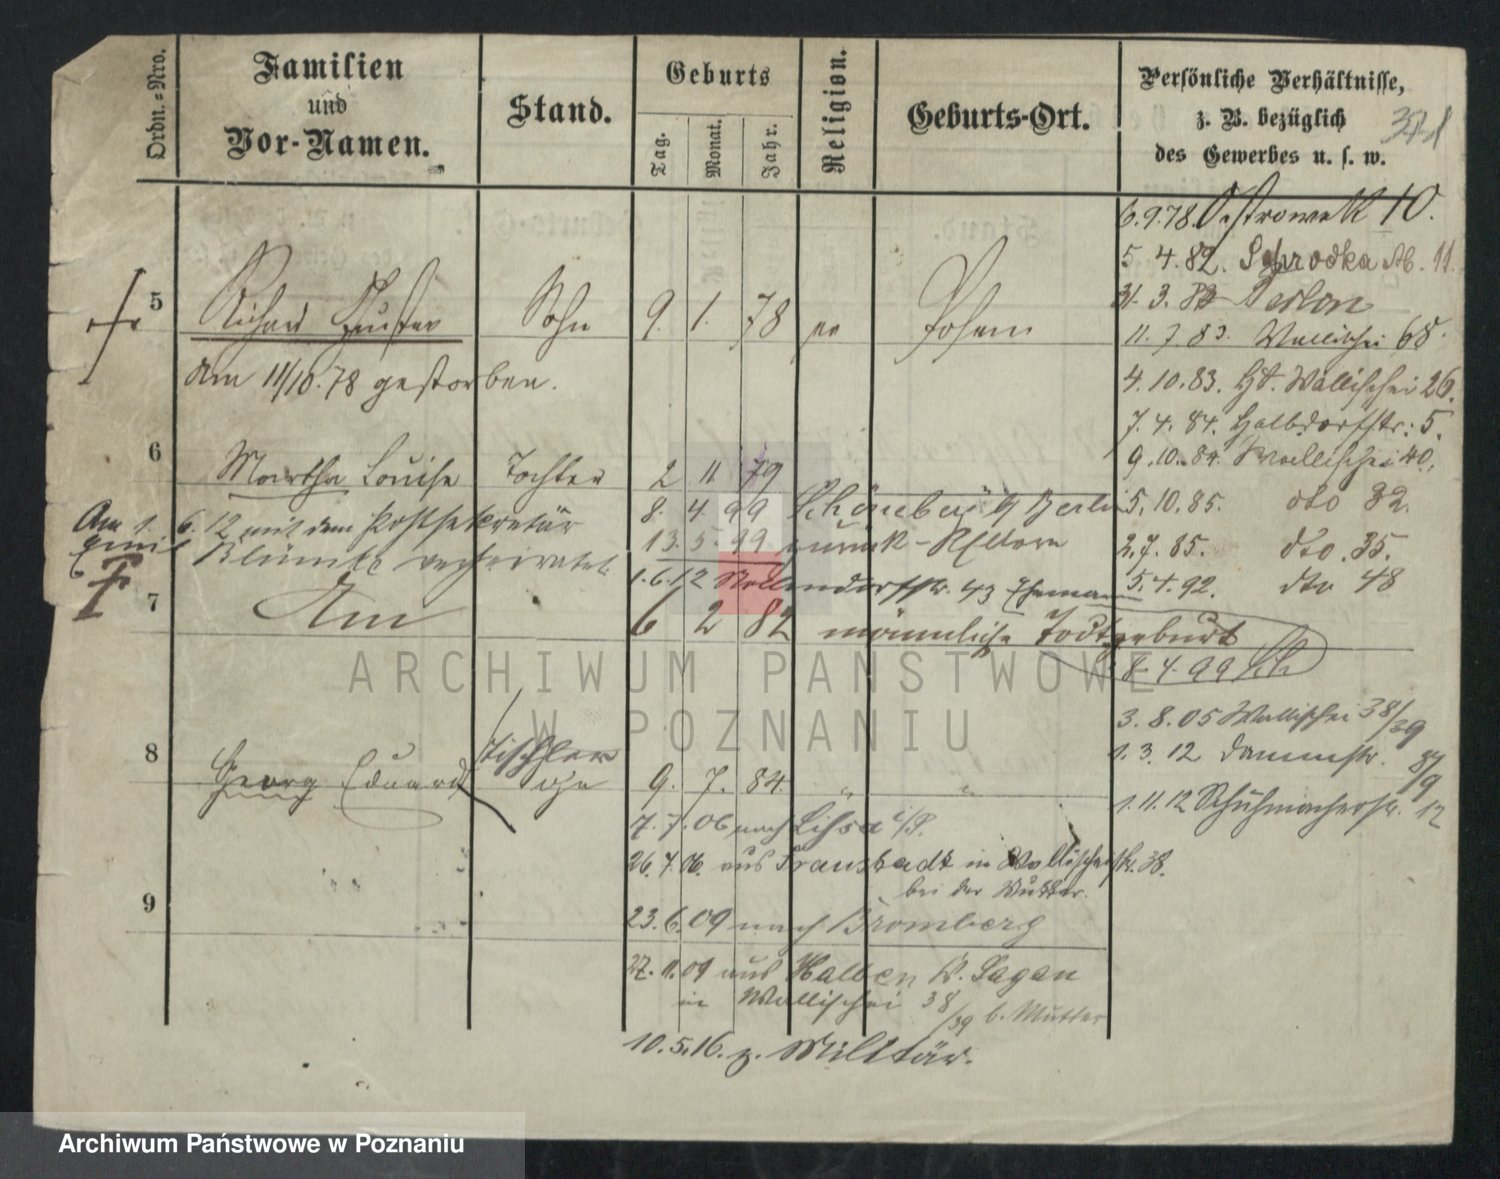 Ordn.-Nro.
Familien
und
Vor-Namen.
Stand.
Geburts
Tag.
Monat.
Jahr.
Religion.
Geburts-Ort.
Persönliche Verhältnisse,
z. B. bezüglich
des Gewerbes u. s. w.
371
6.9.78. Ostrowek 10.
5. 4. 82. Schrodka No. 11.
31. 3. Berlin
11. 7. 83. Wallischei 68.
4. 10. 83. Wallischei 26.
7. 4. 84. Halbdorfstr. 5.
9. 10. 84. Wallischei 40.
5. 10. 85. dto 32.
2. 7. 85. dto. 35.
5. 4. 92. dto 48
8. 4. 99
3. 8. 05 Wallischei 38/39
1. 3. 12 Dammstr.
1. 11. 12 Schuhmacherstr. 12
5 Richard Gustav Sohn 9. 1. 78 Posen
Am 11/10. 78 gestorben.
6 Martha Louise Tochter 2 11 79
8. 4. 99 Schöneberg b/ Berlin
13. 5. 99 zurück - Eltern
Am 1. 6. 12 mit dem Postsekretär
verheiratet
1. 6. 12 43 Ehemann
7 6 2 82 männliche Todtgeburt
8 Georg Eduard Tischler Sohn 9. 7. 84. " "
7. 7. 06 nach Lissa i/P.
26. 7. 06. aus Fraustadt in Wallischeistr. 38.
bei der Mutter.
9
23. 6. 09 nach Bromberg
27. 11. 09 aus Halbau Kr. Sagan
in Wallischei 38/39 b. Mutter
10. 5. 16. z. Militär.
ARCHIWUM PAŃSTWOWE
W POZNANIU
Archiwum Państwowe w Poznaniu